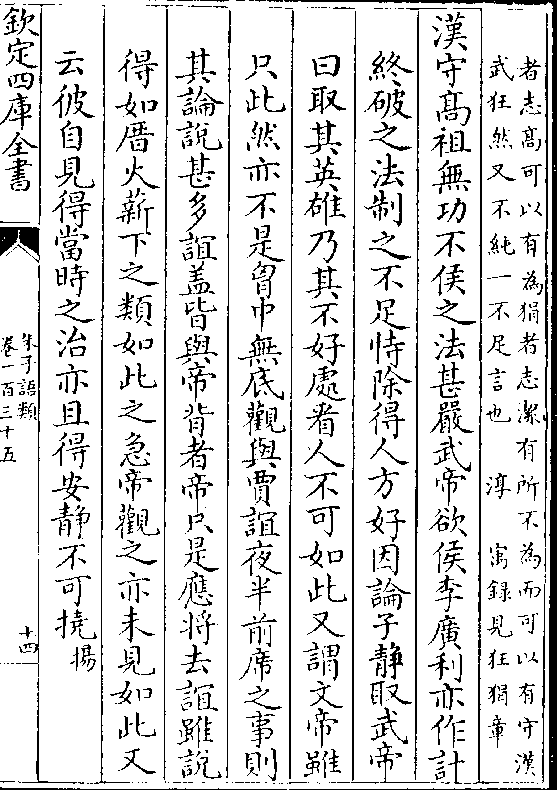 者志髙可以有為狷者志潔有所不為而可以有守漢
武狂然又不純一不足言也　淳　㝢錄見狂狷章
漢守髙祖無功不侯之法甚嚴武帝欲侯李廣利亦作計
終破之法制之不足恃除得人方好因論子静取武帝
曰取其英雄乃其不好處看人不可如此又謂文帝雖
只此然亦不是胷中無底觀與賈誼夜半前席之事則
其論説甚多誼盖皆與帝背者帝只是應將去誼雖説
得如厝火薪下之類如此之急帝觀之亦未見如此又
云彼自見得當時之治亦且得安静不可撓 揚
欽定四庫全書
朱子語類
卷一百三十五
十四